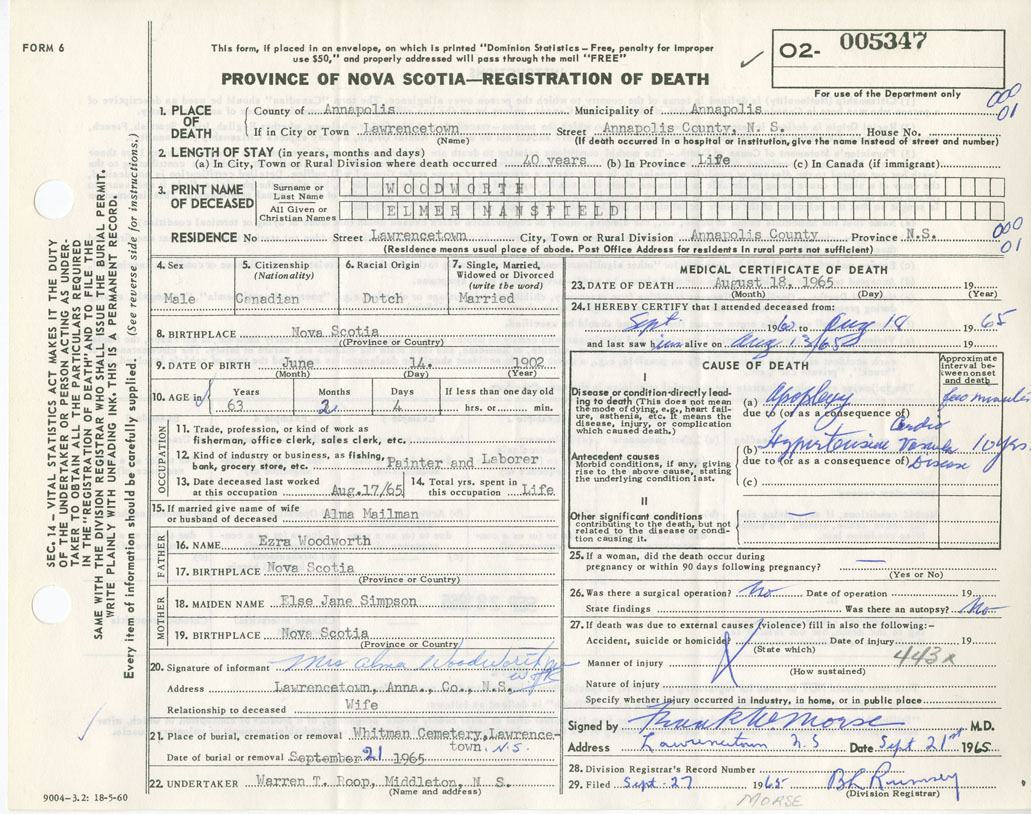 FORM 6
This form, if placed in an envelope, on which is printed "Dominion Statistics – Free, penalty for improper
use $50," and properly addressed will pass through the mail "FREE"
✓ O2- 005347
PROVINCE OF NOVA SCOTIA—REGISTRATION OF DEATH
For use of the Department only
000
01
1. PLACE OF DEATH County of Annapolis Municipality of Annapolis
If in City or Town Lawrencetown Street Annapolis County, N. S. House No.
(Name) (If death occurred in a hospital or institution, give the name instead of street and number)
2. LENGTH OF STAY (in years, months and days)
(a) In City, Town or Rural Division where death occurred 40 years (b) In Province Life (c) In Canada (if immigrant)
3. PRINT NAME OF DECEASED Surname or Last Name WOODWORTH
All Given or Christian Names ELMER MANSFIELD
000
01
RESIDENCE No Street Lawrencetown City, Town or Rural Division Annapolis County Province N.S.
(Residence means usual place of abode. Post Office Address for residents in rural parts not sufficient)
4. Sex Male
5. Citizenship (Nationality) Canadian
6. Racial Origin Dutch
7. Single, Married, Widowed or Divorced (write the word) Married
8. BIRTHPLACE Nova Scotia
(Province or Country)
9. DATE OF BIRTH June 14. 1902
(Month) (Day) (Year)
10. AGE in Years 63 Months 2 Days 4 If less than one day old hrs. or min.
OCCUPATION
11. Trade, profession, or kind of work as
fisherman, office clerk, sales clerk, etc.
12. Kind of industry or business, as fishing,
bank, grocery store, etc. Painter and Laborer
13. Date deceased last worked at this occupation Aug.17/65 14. Total yrs. spent in this occupation Life
15. If married give name of wife
or husband of deceased Alma Mailman
FATHER
16. NAME Ezra Woodworth
17. BIRTHPLACE Nova Scotia
(Province or Country)
MOTHER
18. MAIDEN NAME Else Jane Simpson
19. BIRTHPLACE Nova Scotia
(Province or Country)
20. Signature of informant Mrs Alma Woodworth
Address Lawrencetown, Anna., Co., N.S.
Relationship to deceased Wife
21. Place of burial, cremation or removal Whitman Cemetery, Lawrence-
town, N.S.
Date of burial or removal September 21 1965
22. UNDERTAKER Warren T. Roop, Middleton, N. S.
(Name and address)
9004–3.2: 18-5-60
MEDICAL CERTIFICATE OF DEATH
23. DATE OF DEATH August 18, 1965 19
(Month) (Day) (Year)
24. I HEREBY CERTIFY that I attended deceased from:
Sept 1960 to Aug 18 1965
and last saw him alive on Aug 13/65 19
CAUSE OF DEATH
Approximate interval between onset and death
I
Disease or condition directly leading to death (This does not mean
the mode of dying, e.g., heart failure, asthenia, etc. It means the
disease, injury, or complication
which caused death.)
(a) Apoplexy few minutes
due to (or as a consequence of)
Cardio
(b) Hypertensive Vascular 10 years
due to (or as a consequence of) Disease
Antecedent causes
Morbid conditions, if any, giving
rise to the above cause, stating
the underlying condition last.
(c)
II
Other significant conditions
contributing to the death, but not
related to the disease or condition causing it.
—
25. If a woman, did the death occur during
pregnancy or within 90 days following pregnancy? —
(Yes or No)
26. Was there a surgical operation? No Date of operation 19
State findings Was there an autopsy? No
27. If death was due to external causes (violence) fill in also the following:-
Accident, suicide or homicide? Date of injury 19
(State which)
443x
Manner of injury
(How sustained)
Nature of injury
Specify whether injury occurred in industry, in home, or in public place
Signed by Frank W Morse M.D.
Address Lawrencetown N S Date Sept 21st 1965
28. Division Registrar's Record Number
29. Filed Sept. 27 1965 BL Rumsey
(Division Registrar)
MORSE
SEC. 14 – VITAL STATISTICS ACT MAKES IT THE DUTY
OF THE UNDERTAKER OR PERSON ACTING AS UNDER-
TAKER TO OBTAIN ALL THE PARTICULARS REQUIRED
IN THE "REGISTRATION OF DEATH" AND TO FILE THE
SAME WITH THE DIVISION REGISTRAR WHO SHALL ISSUE THE BURIAL PERMIT.
WRITE PLAINLY WITH UNFADING INK. THIS IS A PERMANENT RECORD.
Every item of information should be carefully supplied. (See reverse side for instructions.)